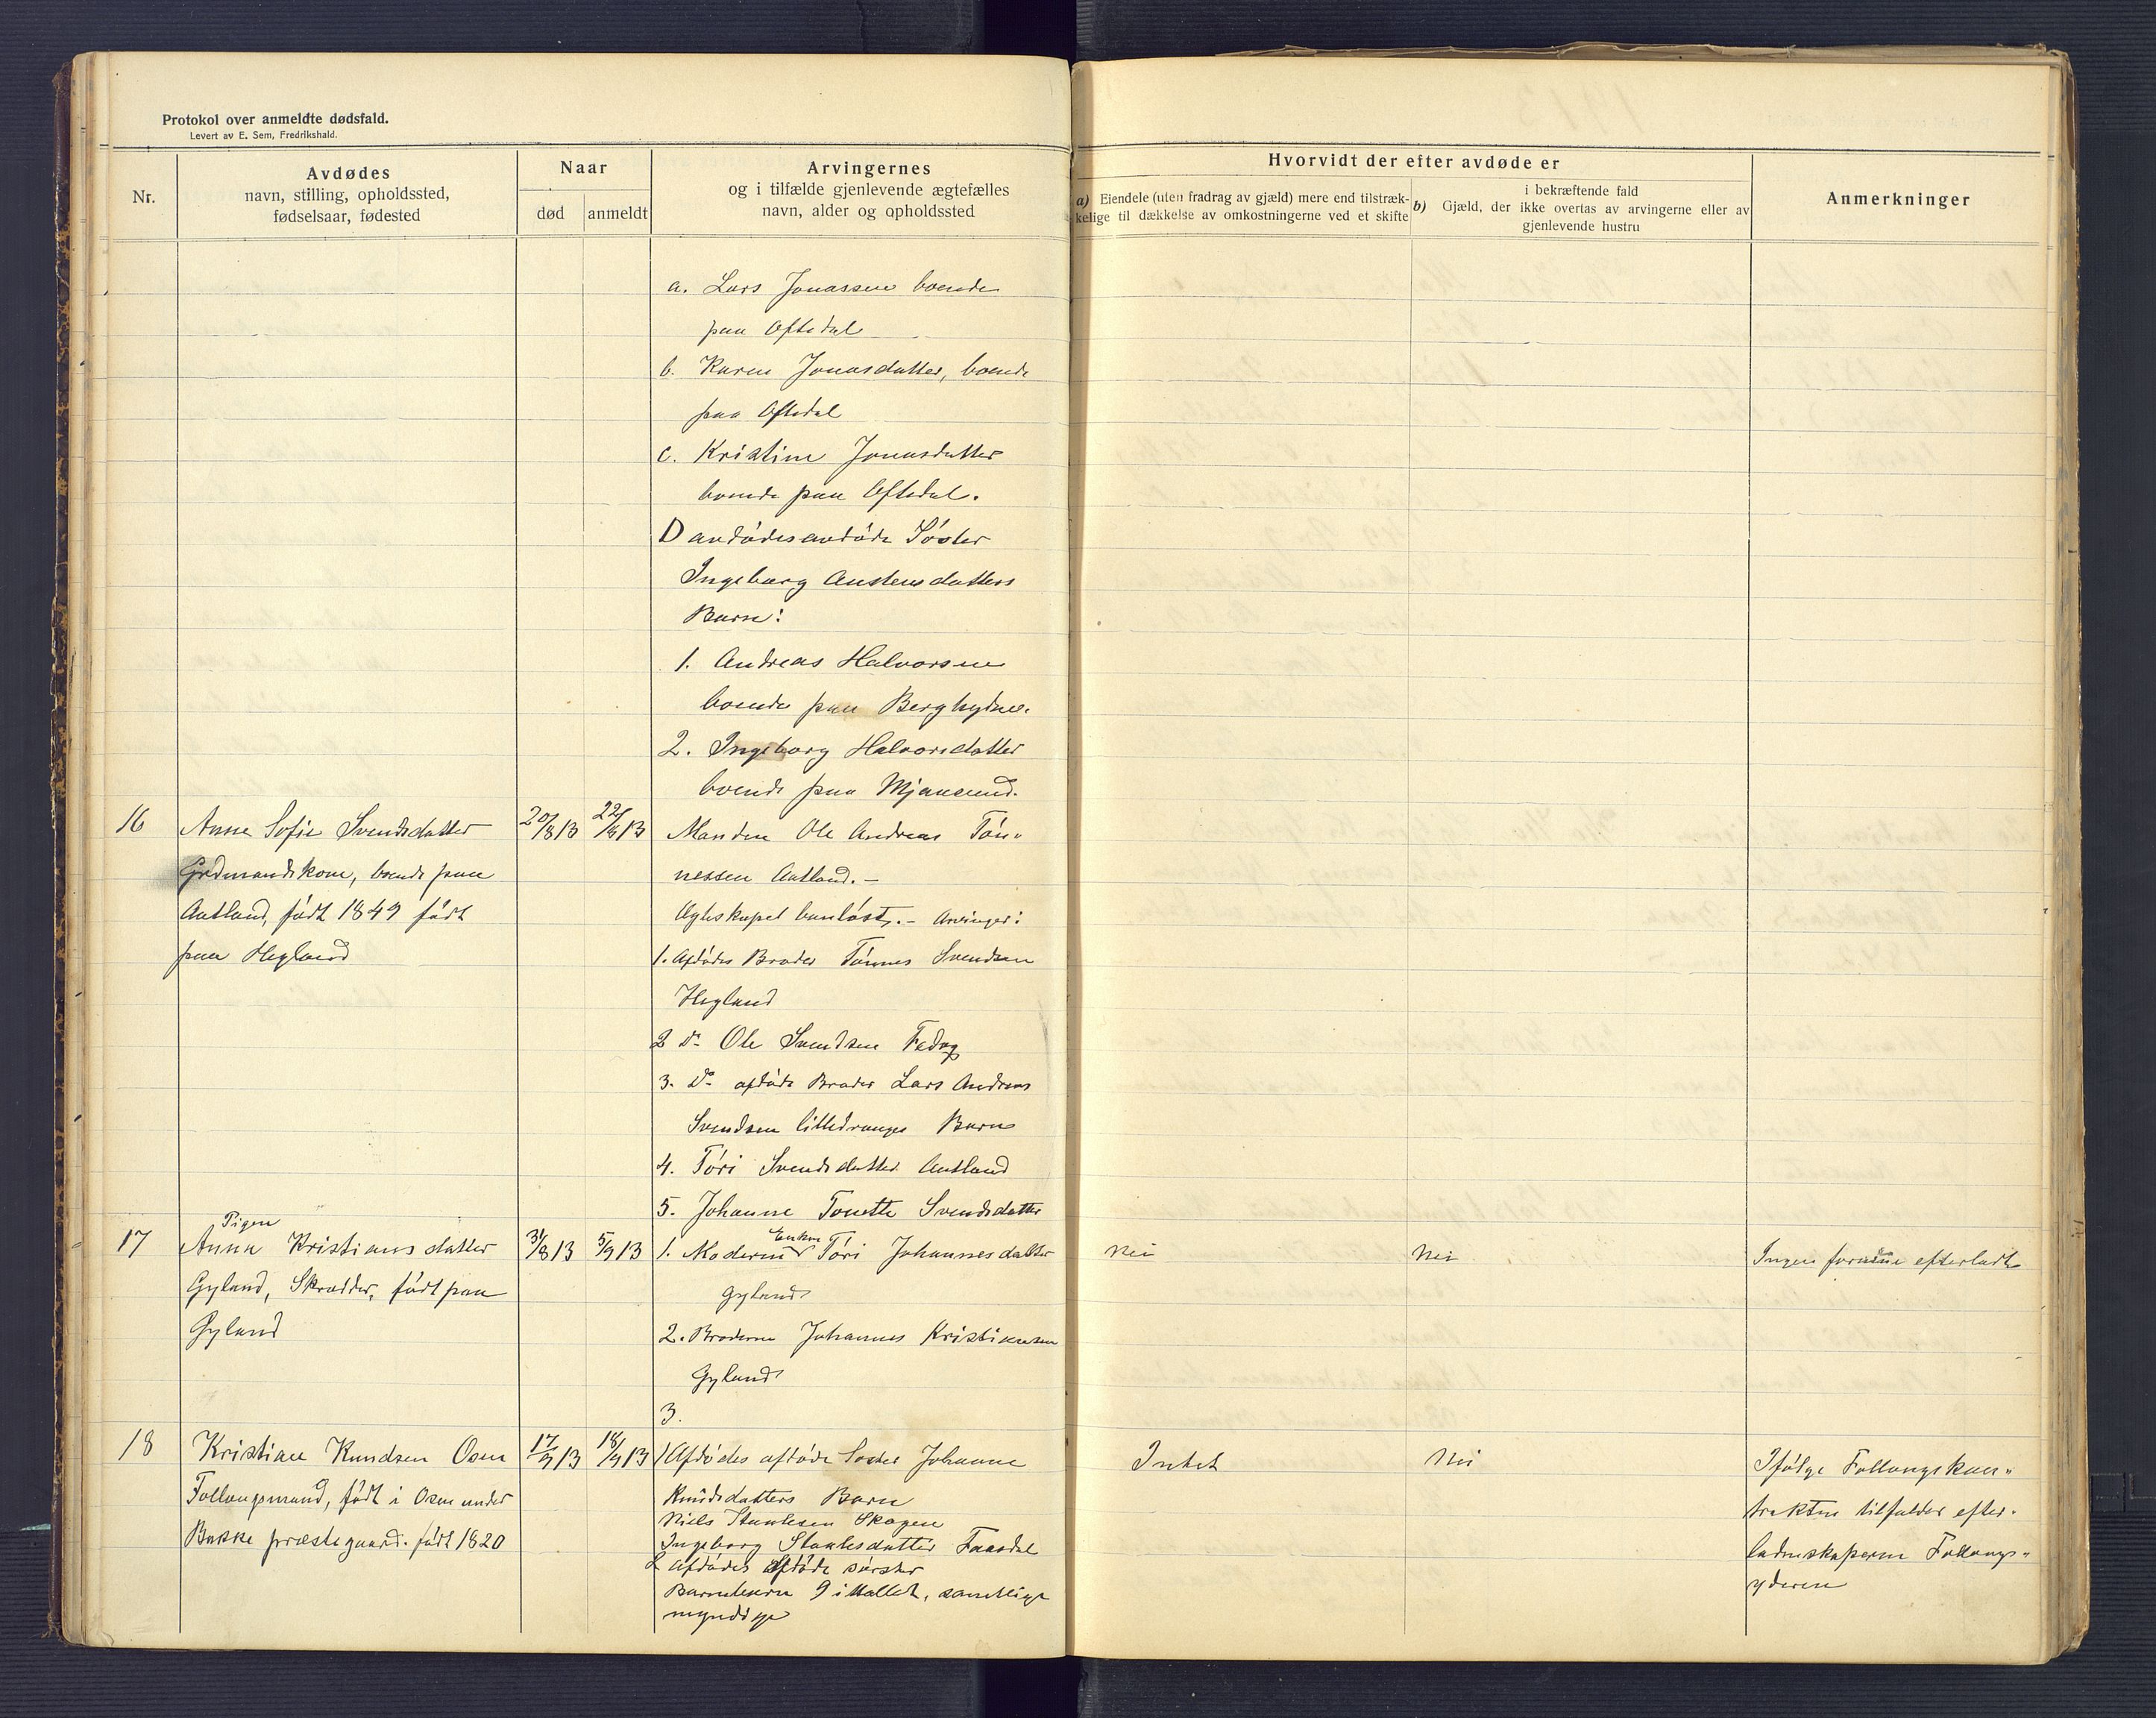 Protokol over anmeldte dødsfald.
Levert av E. Sem, Fredrikshald.
Nr.
Avdødes
navn, stilling, opholdssted,
fødselsaar, fødested
Naar
død
anmeldt
Arvingernes
og i tilfælde gjenlevende ægtefælles
navn, alder og opholdssted
Hvorvidt der efter avdøde er
a) Eiendele (uten fradrag av gjæld) mere end tilstræk-
kelige til dækkelse av omkostningerne ved et skifte
i bekræftende fald
b) Gjæld, der ikke overtas av arvingerne eller av
gjenlevende hustru
Anmerkninger
a. Lars Jonassen boende
paa Oftedal
b. Karen Jonasdatter, boende
paa Oftedal
c. Kristine Jonasdatter
boende paa Oftedal.
D avdødes avdøde Søster
Ingeborg Austensdatters
Børn:
1. Andreas Halvorsen
boende paa
2. Ingeborg Halvorsdatter
boende paa Mjaasund.
16
Anne Sofie Svendsdatter
Grdmandskone, boende paa
Aatland, født 1849 født
paa Hegland
20/8 13
22/8 13
Manden Ole Andreas Tøn„
nessen Aatland.—
Ægteskapet barnløst.— Arvinger:
1. Afdødes Broder Tønnes Svendsen
Hegland
2 Do Ole Svendsen Fedog
3. Do afdøde Broder Lars Andreas
Svendsen Litledranges Børn
4. Tøri Svendsdatter Aatland
5. Johanne Tonette Svendsdatter
17
Pigen
Anna Kristiansdatter
Gyland, Skrædder, født paa
Gyland
31/8 13
5/9 13
1. Moderen Enken Tøri Johannesdatter
Gyland
2. Broderen Johannes Kristiansen
Gyland
3.
Nei
Nei
Ingen formue efterladt
18
Kristian Knudsen Osen
Follougsmand, født i Osen under
Bakke præstegaard. født 1820
17/9 13
18/9 13
1 Afdødes afdøde Søster Johanne
Knudsdatters Børn
Niels Staalesen Skagen
Ingeborg Staalesdatter Faasdal
2 Afdødes afdøde søster
Barnebørn 9 i tallet, samtlige
myndige
Intet
Nei
Ifølge Follougskon„
trakten tilfalder efter-
ladenskaperne Follougs„
yderen